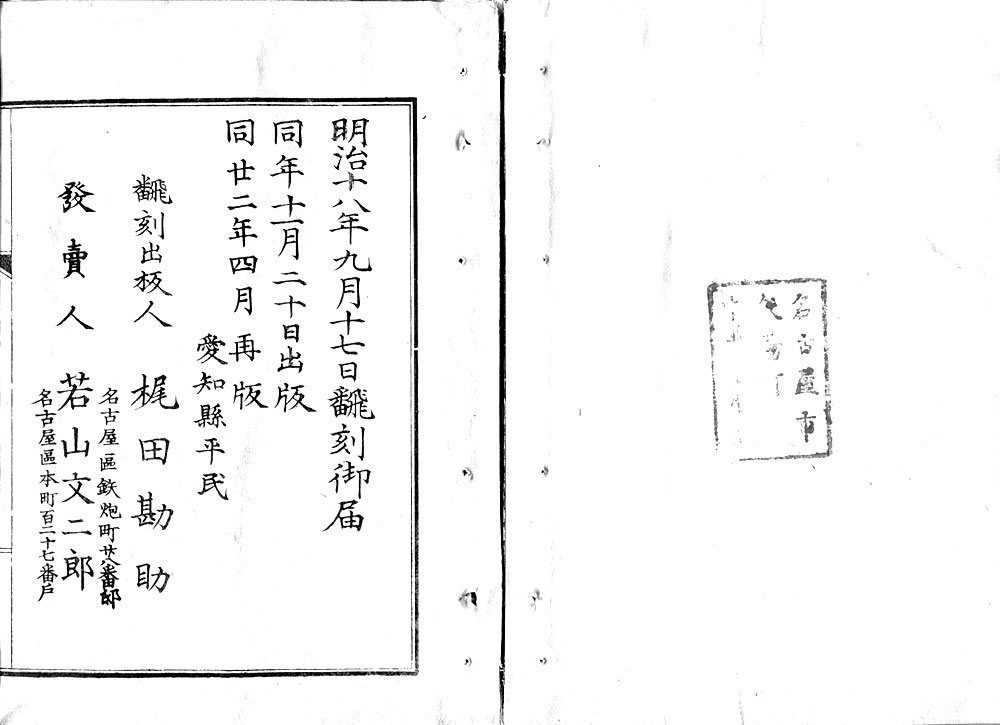 名古屋市
明治十八年九月十七日飜刻御届
同年十一月二十日出版
同廿二年四月再版
愛知縣平民
飜刻出板人 梶田勘助
名古屋區鉄炮町廿八番邸
發賣人 若山文二郎
名古屋區本町百二十七番戶